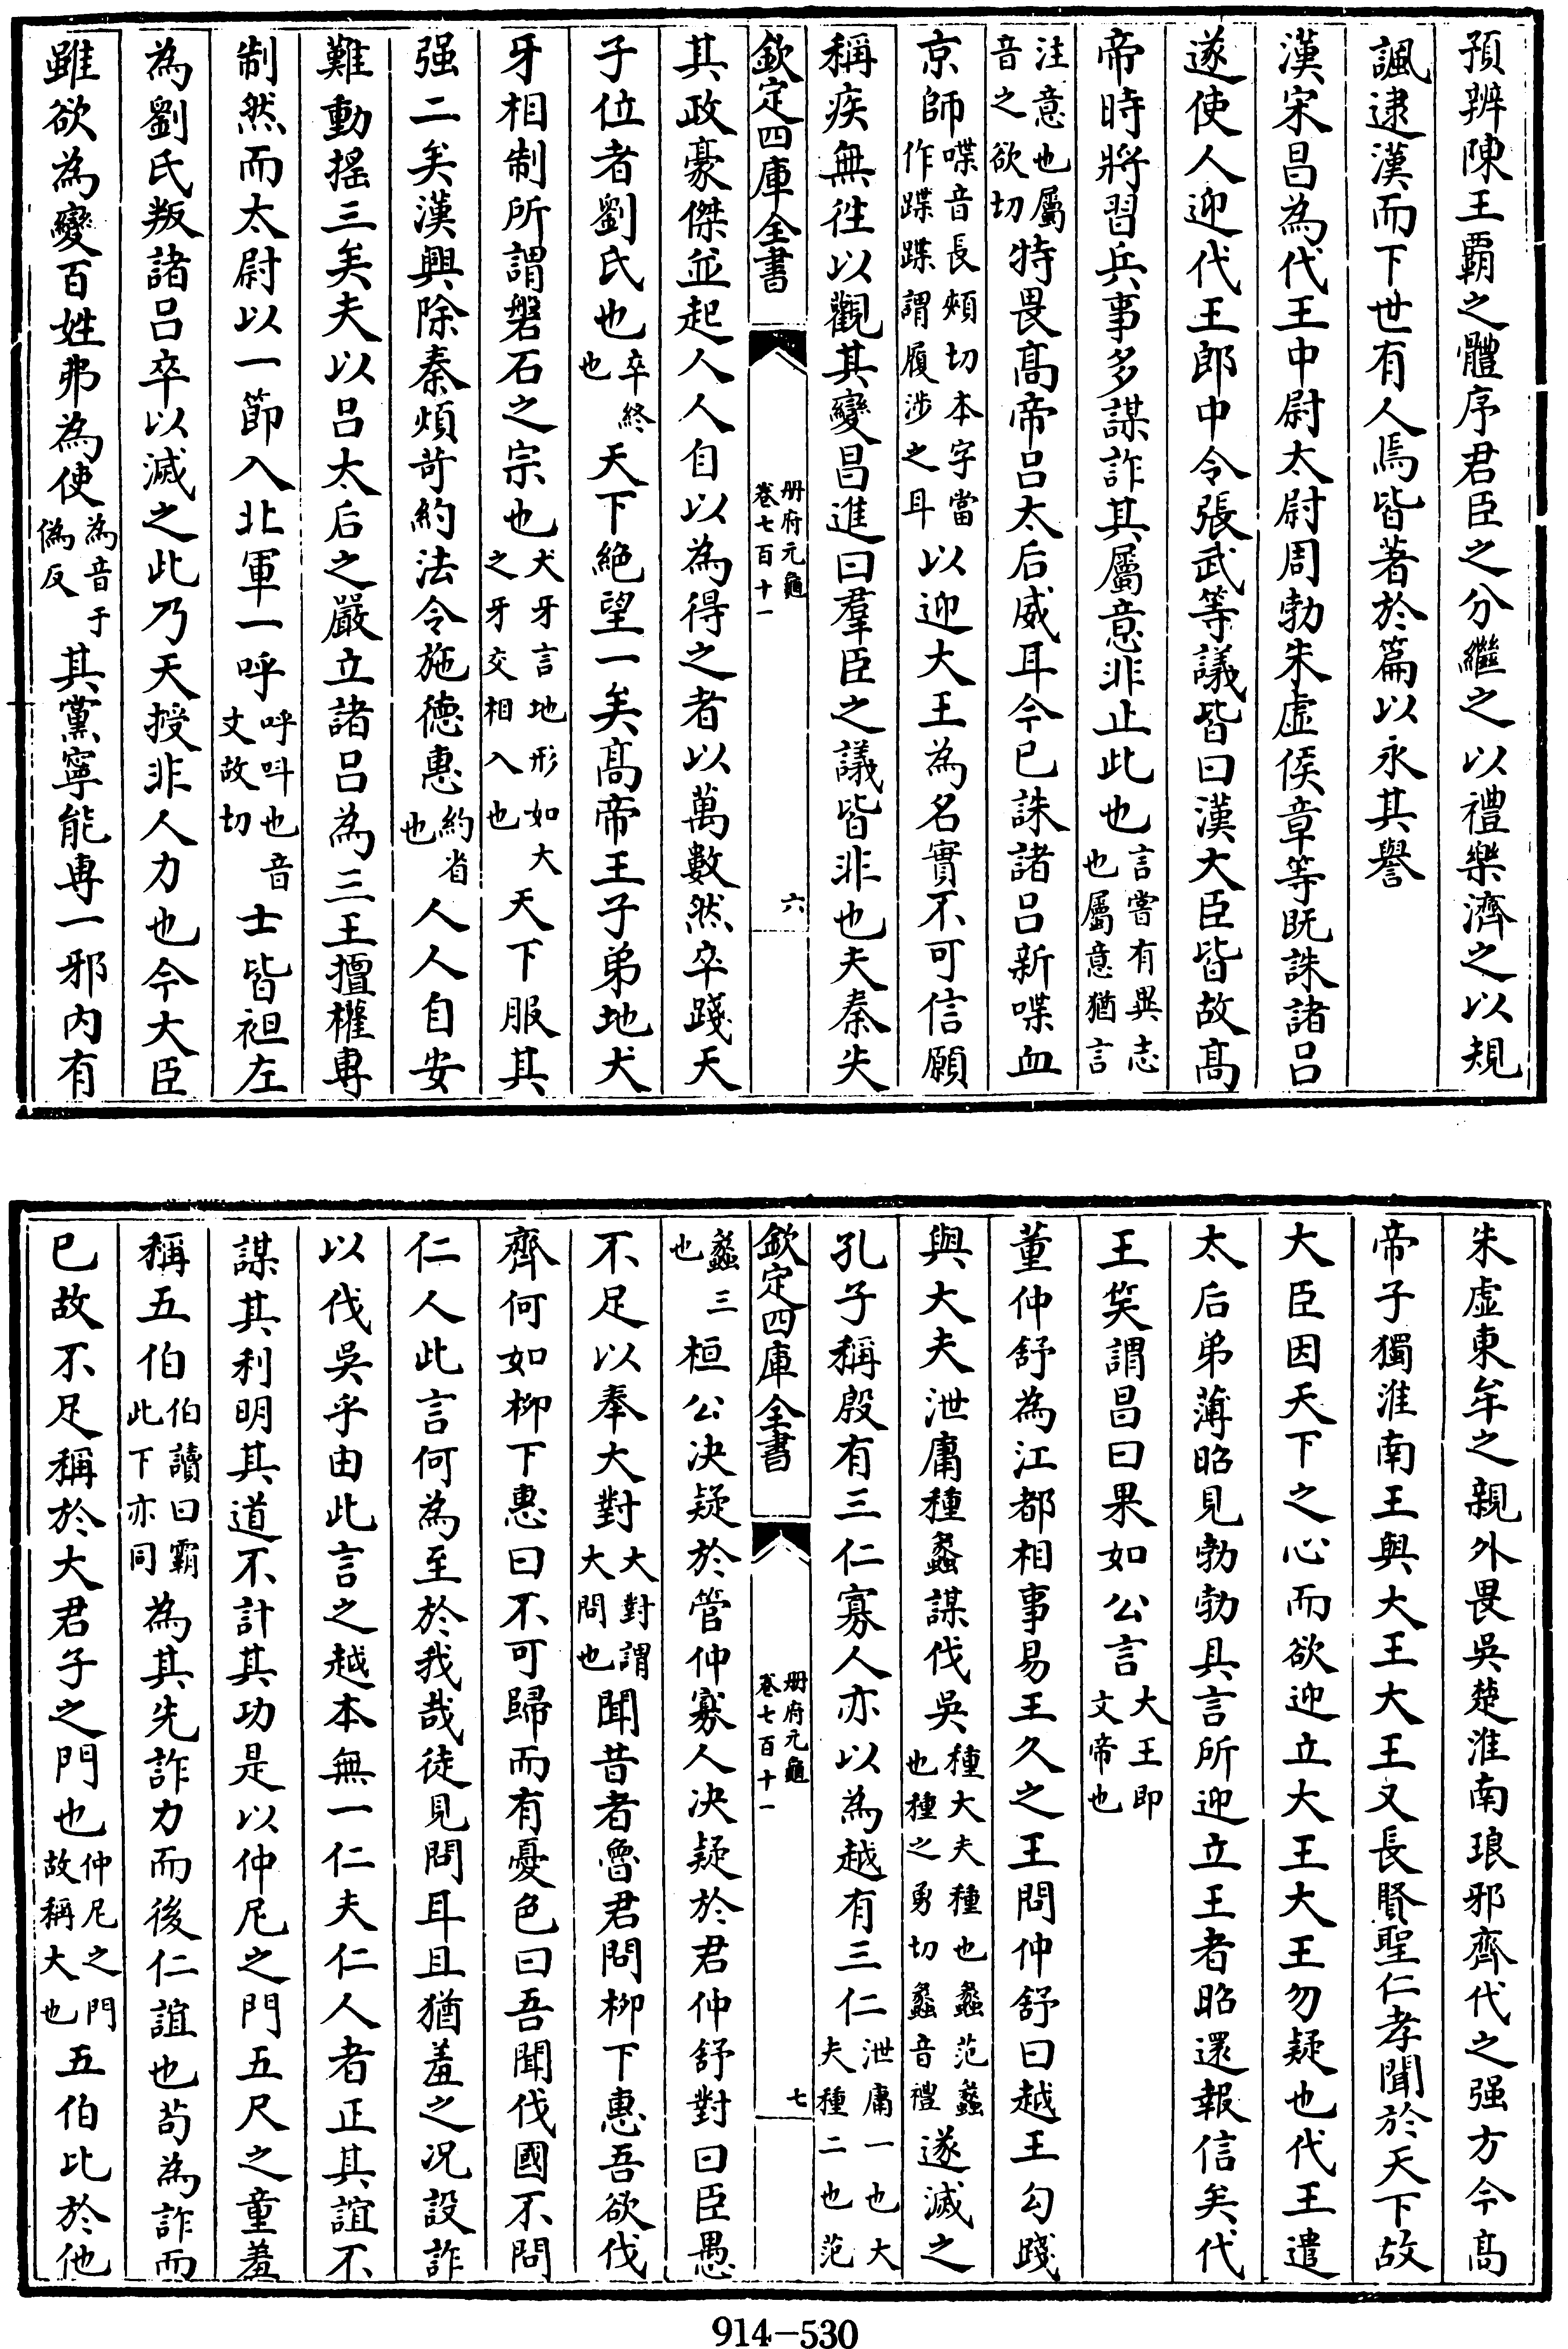 預辨陳王覇之體序君臣之分繼之以禮樂濟之以規
諷逮漢而下世有人焉皆著於篇以永其譽
漢宋昌為代王中尉太尉周勃朱虛侯章等既誅諸呂
遂使人迎代王郎中令張武等議皆曰漢大臣皆故髙
帝時將習兵事多謀詐其屬意非止此也言嘗有異志也屬意猶言
注意也屬音之欲切特畏髙帝呂太后威耳今已誅諸呂新喋血
京師喋音長頰切本字當作蹀蹀謂履涉之耳以迎大王為名實不可信願
稱疾無徃以觀其變昌進曰羣臣之議皆非也夫秦失
欽定四庫全書
册府元龜
卷七百十一
六
其政豪傑並起人人自以為得之者以萬數然卒踐天
子位者劉氏也卒終也天下絶望一矣髙帝王子弟地犬
牙相制所謂磐石之宗也犬牙言地形如大之牙交相入也天下服其
强二矣漢興除秦煩苛約法令施徳惠約省也人人自安
難動揺三矣夫以呂太后之嚴立諸呂為三王擅權專
制然而太尉以一節入北軍一呼呼呌也音丈故切士皆袒左
為劉氏叛諸呂卒以滅之此乃天授非人力也今大臣
雖欲為變百姓弗為使為音于偽反其黨寧能專一邪内有
朱虛東牟之親外畏吳楚淮南琅邪齊代之强方今髙
帝子獨淮南王與大王大王又長賢聖仁孝聞於天下故
大臣因天下之心而欲迎立大王大王勿疑也代王遣
太后弟薄昭見勃勃具言所迎立王者昭還報信矣代
王笑謂昌曰果如公言大王即文帝也
董仲舒為江都相事易王久之王問仲舒曰越王勾踐
與大夫泄庸種蠡謀伐吳種大夫種也蠡范蠡也種之勇切蠡音禮遂滅之
孔子稱殷有三仁寡人亦以為越有三仁泄庸一也大夫種二也范
欽定四庫全書
册府元龜
卷七百十一
七
蠡三也桓公決疑於管仲寡人決疑於君仲舒對曰臣愚
不足以奉大對大對謂大問也聞昔者魯君問栁下惠吾欲伐
齊何如栁下惠曰不可歸而有憂色曰吾聞伐國不問
仁人此言何為至於我哉徒見問耳且猶羞之况設詐
以伐吳乎由此言之越本無一仁夫仁人者正其誼不
謀其利明其道不計其功是以仲尼之門五尺之童羞
稱五伯伯讀曰霸此下亦同為其先詐力而後仁誼也苟為詐而
已故不足稱於大君子之門也仲尼之門故稱大也五伯比於他
914-530